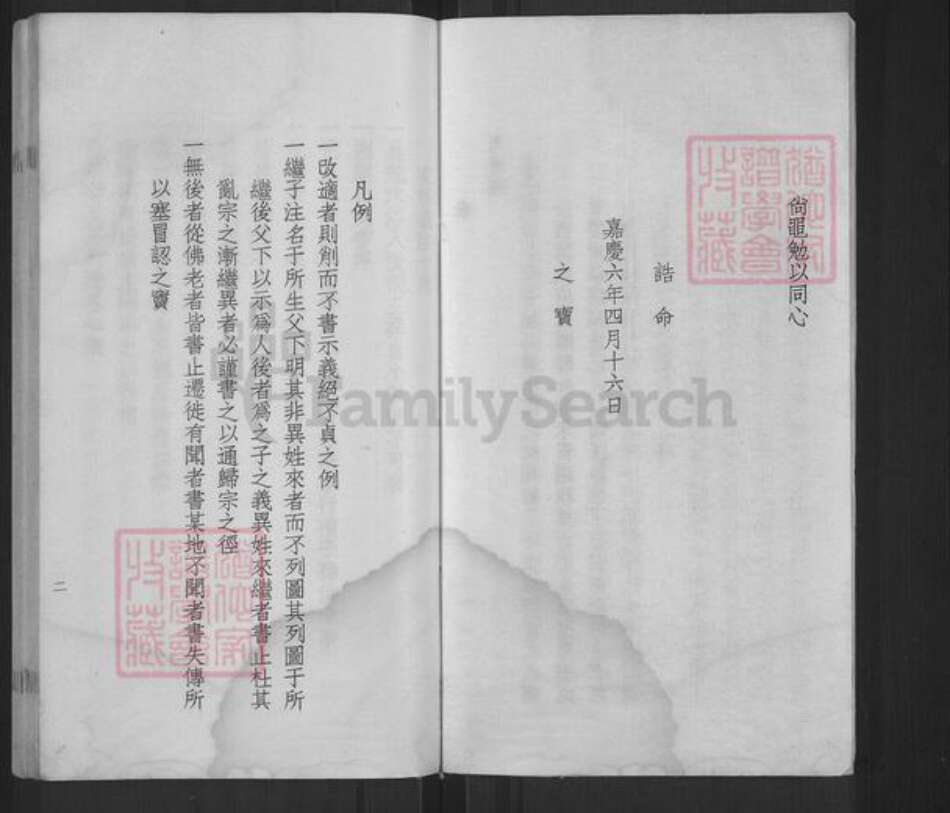 尙黽勉以同心
誥命
嘉慶六年四月十六日
之寶
凡例
一改適者則削而不書示義絕不貞之例
一繼子注名于所生父下明其非異姓來者而不列圖其列圖于所
繼後父下以示爲人後者爲之子之義異姓來繼者書止杜其
亂宗之漸繼異者必謹書之以通歸宗之徑
一無後者從佛老者皆書止遷徙有聞者書某地不聞者書失傳所
以塞冒認之竇
二
FamilySearch